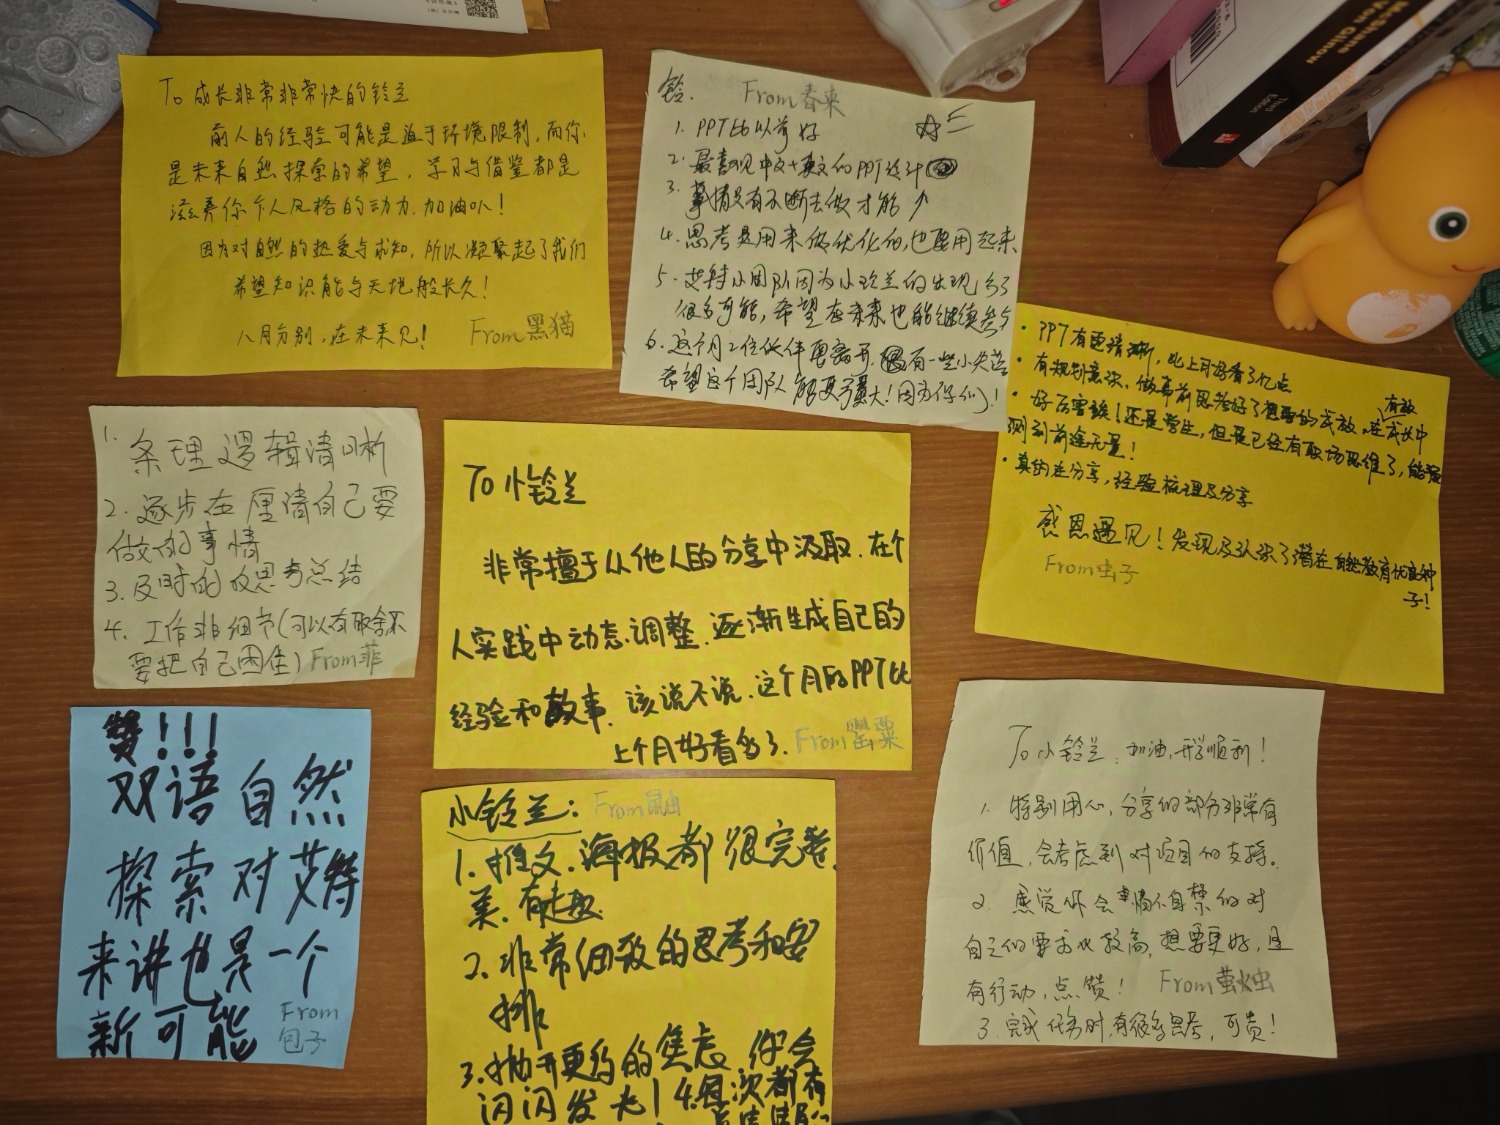 To 成长非常非常快的铃兰
前人的经验可能是迫于环境限制，而你
是未来自然探索的希望，学习与借鉴都是
滋养你个人风格的动力，加油叭！
因为对自然的热爱与求知，所以凝聚起了我们
希望知识能与天地般长久！
八月分别，在未来见！ From黑猫
铃. From春来
1. PPT比以前好
2. 最喜欢中文+英文的PPT设计
3. 事情只有不断去做才能↑
4. 思考是用来做优化的，也要用起来
5. 艾特小团队因为小玲兰的出现多了
很多可能，希望在未来也能继续参与
6. 这个月2位伙伴要离开，有一些小失落
希望这个团队能更强大！因为你们！
· PPT有更清晰，比上月好看了亿点
· 有规划意识，做事前思考好了想要的成效，在有效成长中
· 好厉害诶！还是学生，但是已经有职场思维了，能
到前途无量！
· 真的在分享，经验梳理及分享
感恩遇见！发现及认识了潜在自然教育优良种
子！
From虫子
1. 条理逻辑清晰
2. 逐步在厘清自己要
做的事情
3. 及时的收思考总结
4. 工作非细节（可以有取舍不
要把自己困住） From菲
To 小铃兰
非常擅于从他人的分享中汲取，在个
人实践中动态调整，逐渐生成自己的
经验和故事，该说不说，这个月的PPT比
上个月好看多了. From罂粟
赞！！！
双语自然
探索对艾特
来讲也是一个
新可能
From
包子
小铃兰： From鼠曲
1. 推文、海报都很完整、
美、有趣
2. 非常细致的思考和安
排
3. 抛开更多的焦虑，你会
闪闪发光！4. 每次都有
To 小铃兰：加油，开学顺利！
1. 特别用心，分享的部分非常有
价值，会考虑到对项目的支持。
2. 感觉你会情不自禁的对
自己的要求比较高，想要更好，且
有行动，点赞！ From萤火虫
3. 完成任务时，有很多思考，可贵！
McShane
Von Glinow
Third
Edition